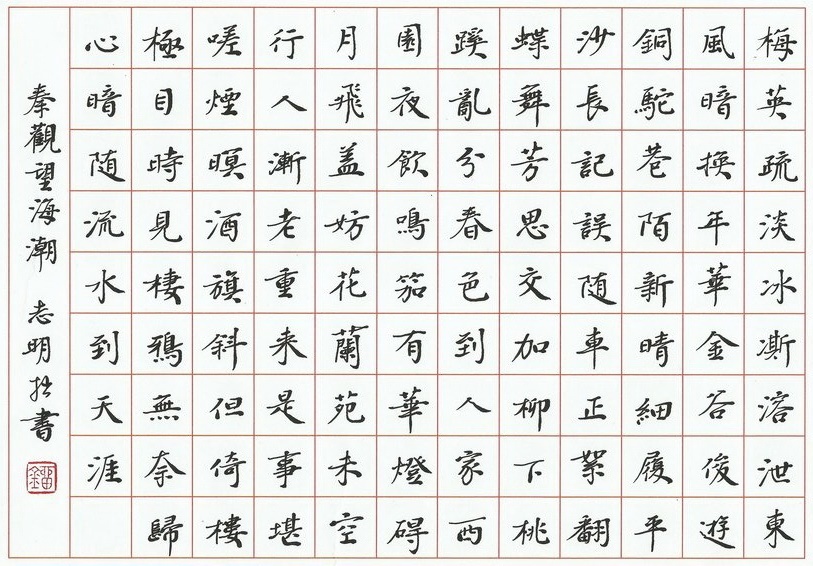 梅英疏淡冰澌溶泄東
風暗換年華金谷俊遊
銅駝巷陌新晴細履平
沙長記誤随車正絮翻
蝶舞芳思交加柳下桃
蹊亂分春色到人家西
園夜飲鳴笳有華燈碍
月飛盖妨花蘭苑未空
行人漸老重来是事堪
嗟煙暝酒旗斜但倚樓
極目時見棲鴉無奈歸
心暗随流水到天涯
秦觀望海潮 志明拙書